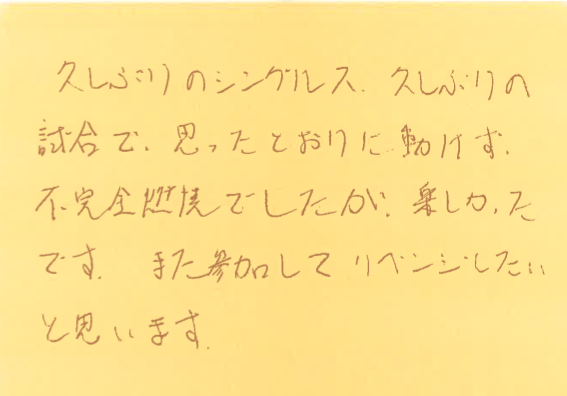 久しぶりのシングルス、久しぶりの
試合で、思ったとおりに動けず、
不完全燃焼でしたが、楽しかった
です。また参加してリベンジしたい
と思います。